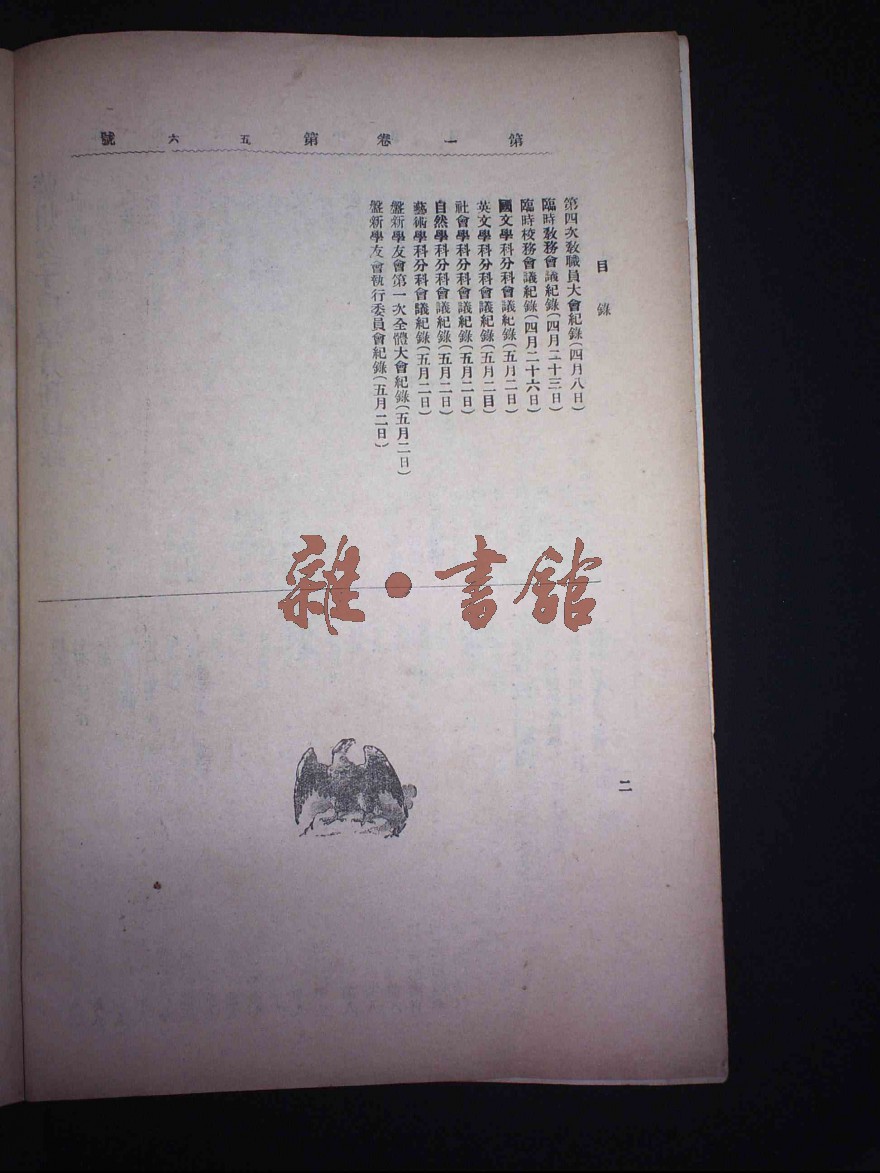 第一卷第五六號
目錄
第四次教職員大會紀錄(四月八日)
臨時教務會議紀錄(四月二十三日)
臨時校務會議紀錄(四月二十六日)
國文學科分科會議紀錄(五月二日)
英文學科分科會議紀錄(五月二日)
社會學科分科會議紀錄(五月二日)
自然學科分科會議紀錄(五月二日)
藝術學科分科會議紀錄(五月二日)
盤新學友會第一次全體大會紀錄(五月二日)
盤新學友會執行委員會紀錄(五月二日)
雜·書館
二